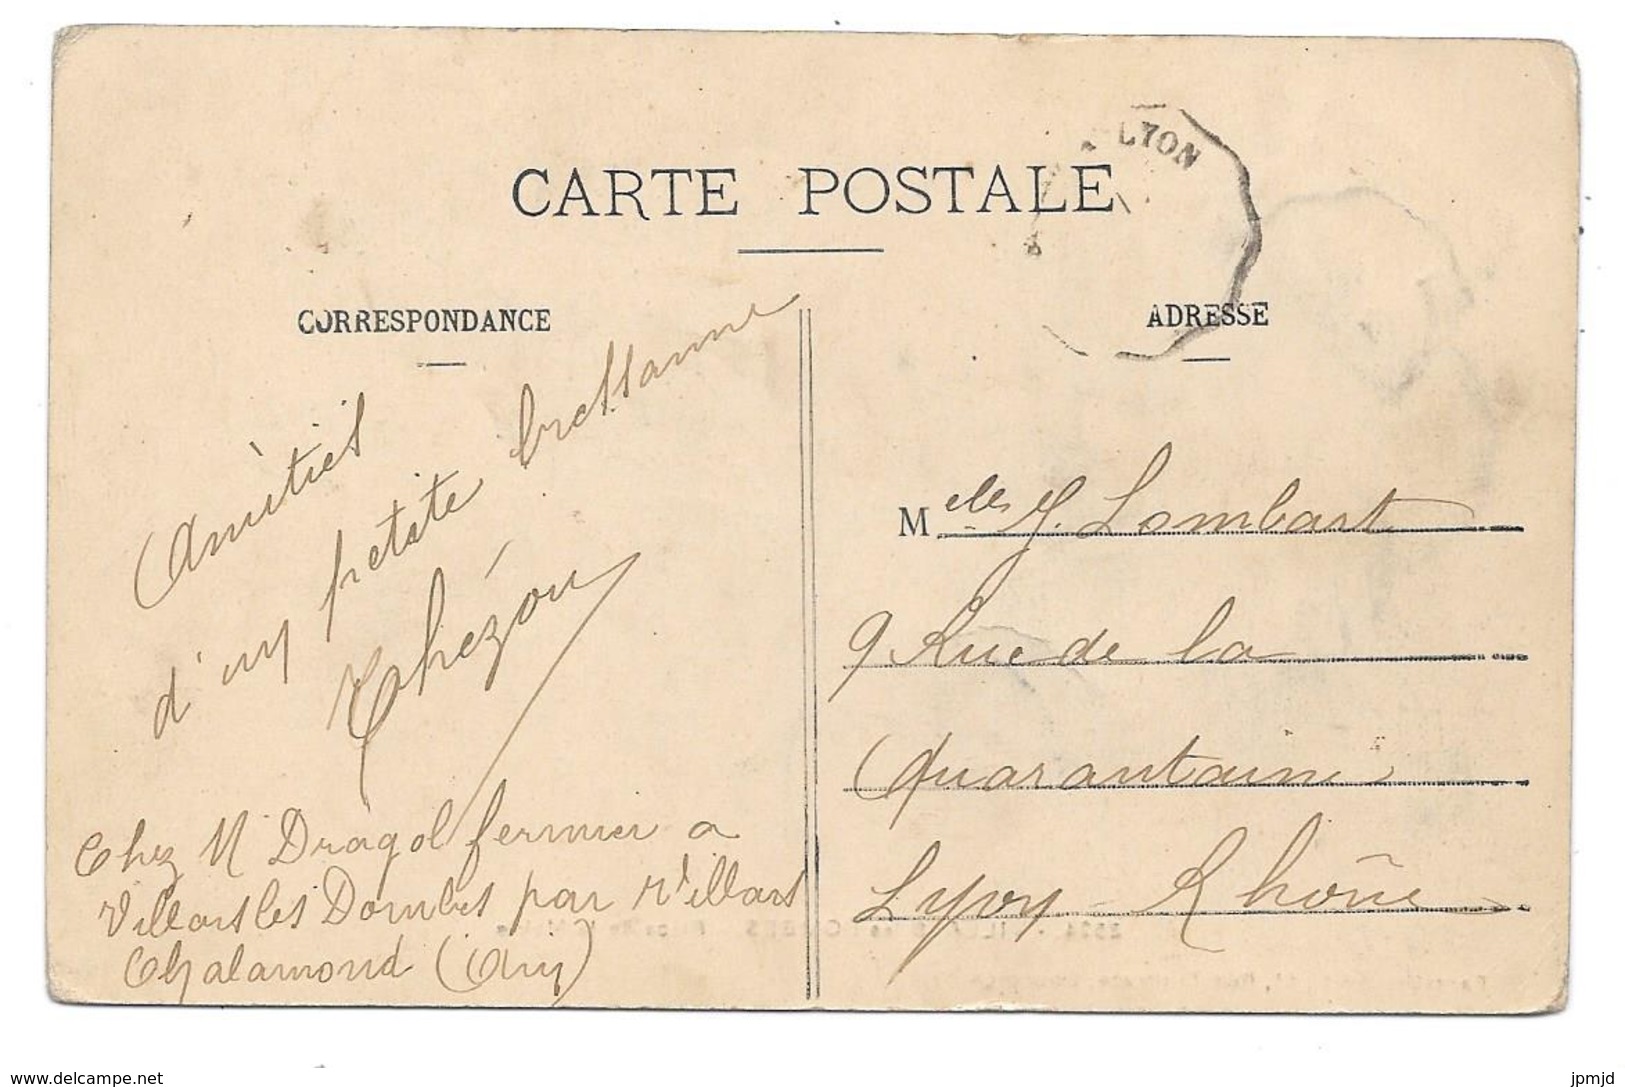 LYON
CARTE POSTALE
CORRESPONDANCE
ADRESSE
Amitiés
d'un petite bressanne
Thézou
Chez M Dragol fermier a
Villars les Dombes par Villars
Chalamond (Ain)
Melles Y. Lombart
9 Rue de la
Quarantaine
Lyon Rhône
www.delcampe.net
jpmjd